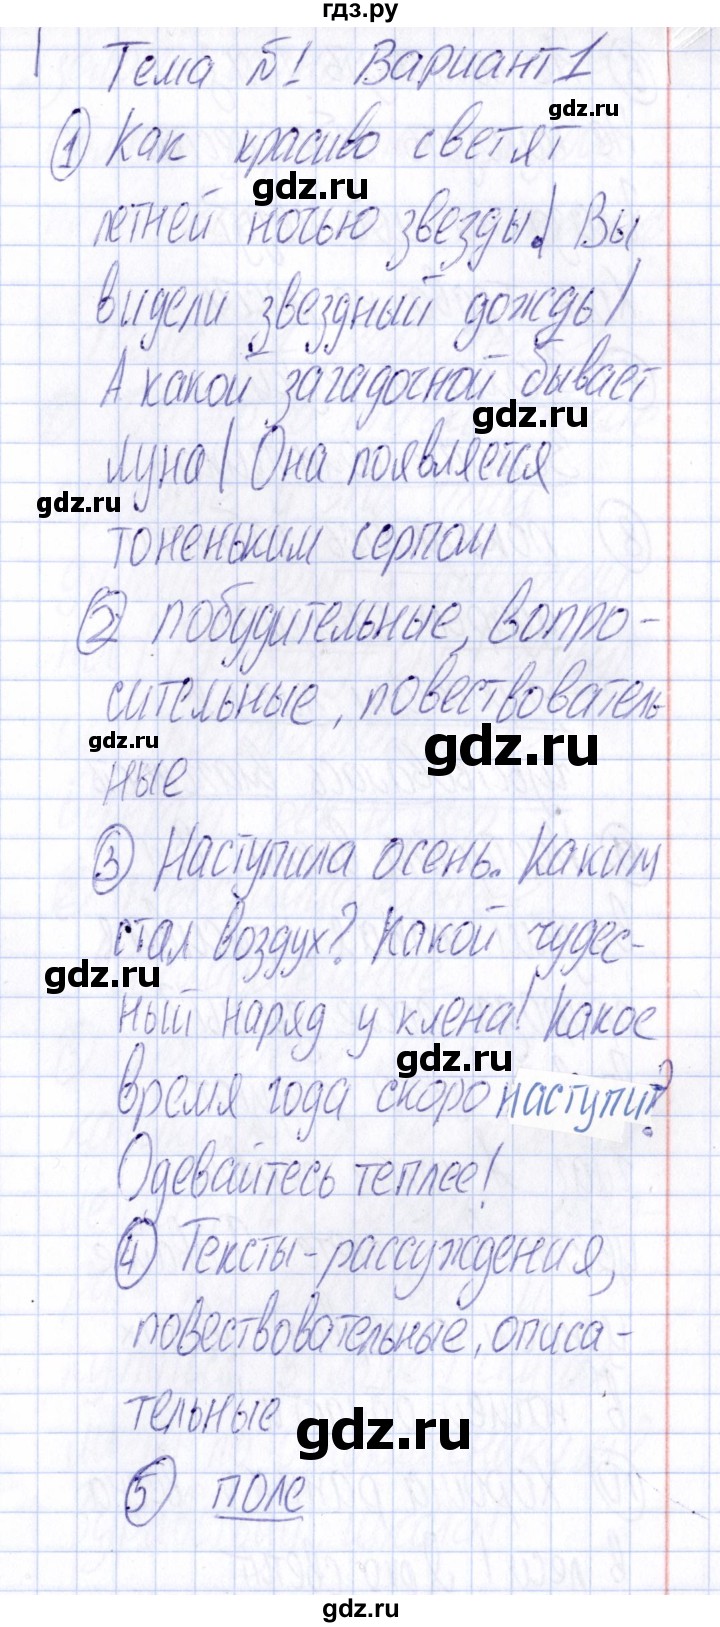 гдз.ру
Тема №1 Вариант 1
gdz.ru
① Как красиво светят
gdz.ru
летней ночью звезды! Вы
видели звездный дождь!
А какой загадочной бывает
gdz.ru
луна! Она появляется
gdz.ru
тоненьким серпом
② побудительные, вопро-
сительные, повествователь-
gdz.ru
gdz.ru
ные
③ Наступила осень. Каким
стал воздух? Какой чудес-
gdz.ru
ный наряд у клена! Какое
gdz.ru
время года скоро наступит?
Одевайтесь теплее!
④ Тексты-рассуждения,
повествовательные, описа-
тельные
gdz.ru
⑤ поле
gdz.ru